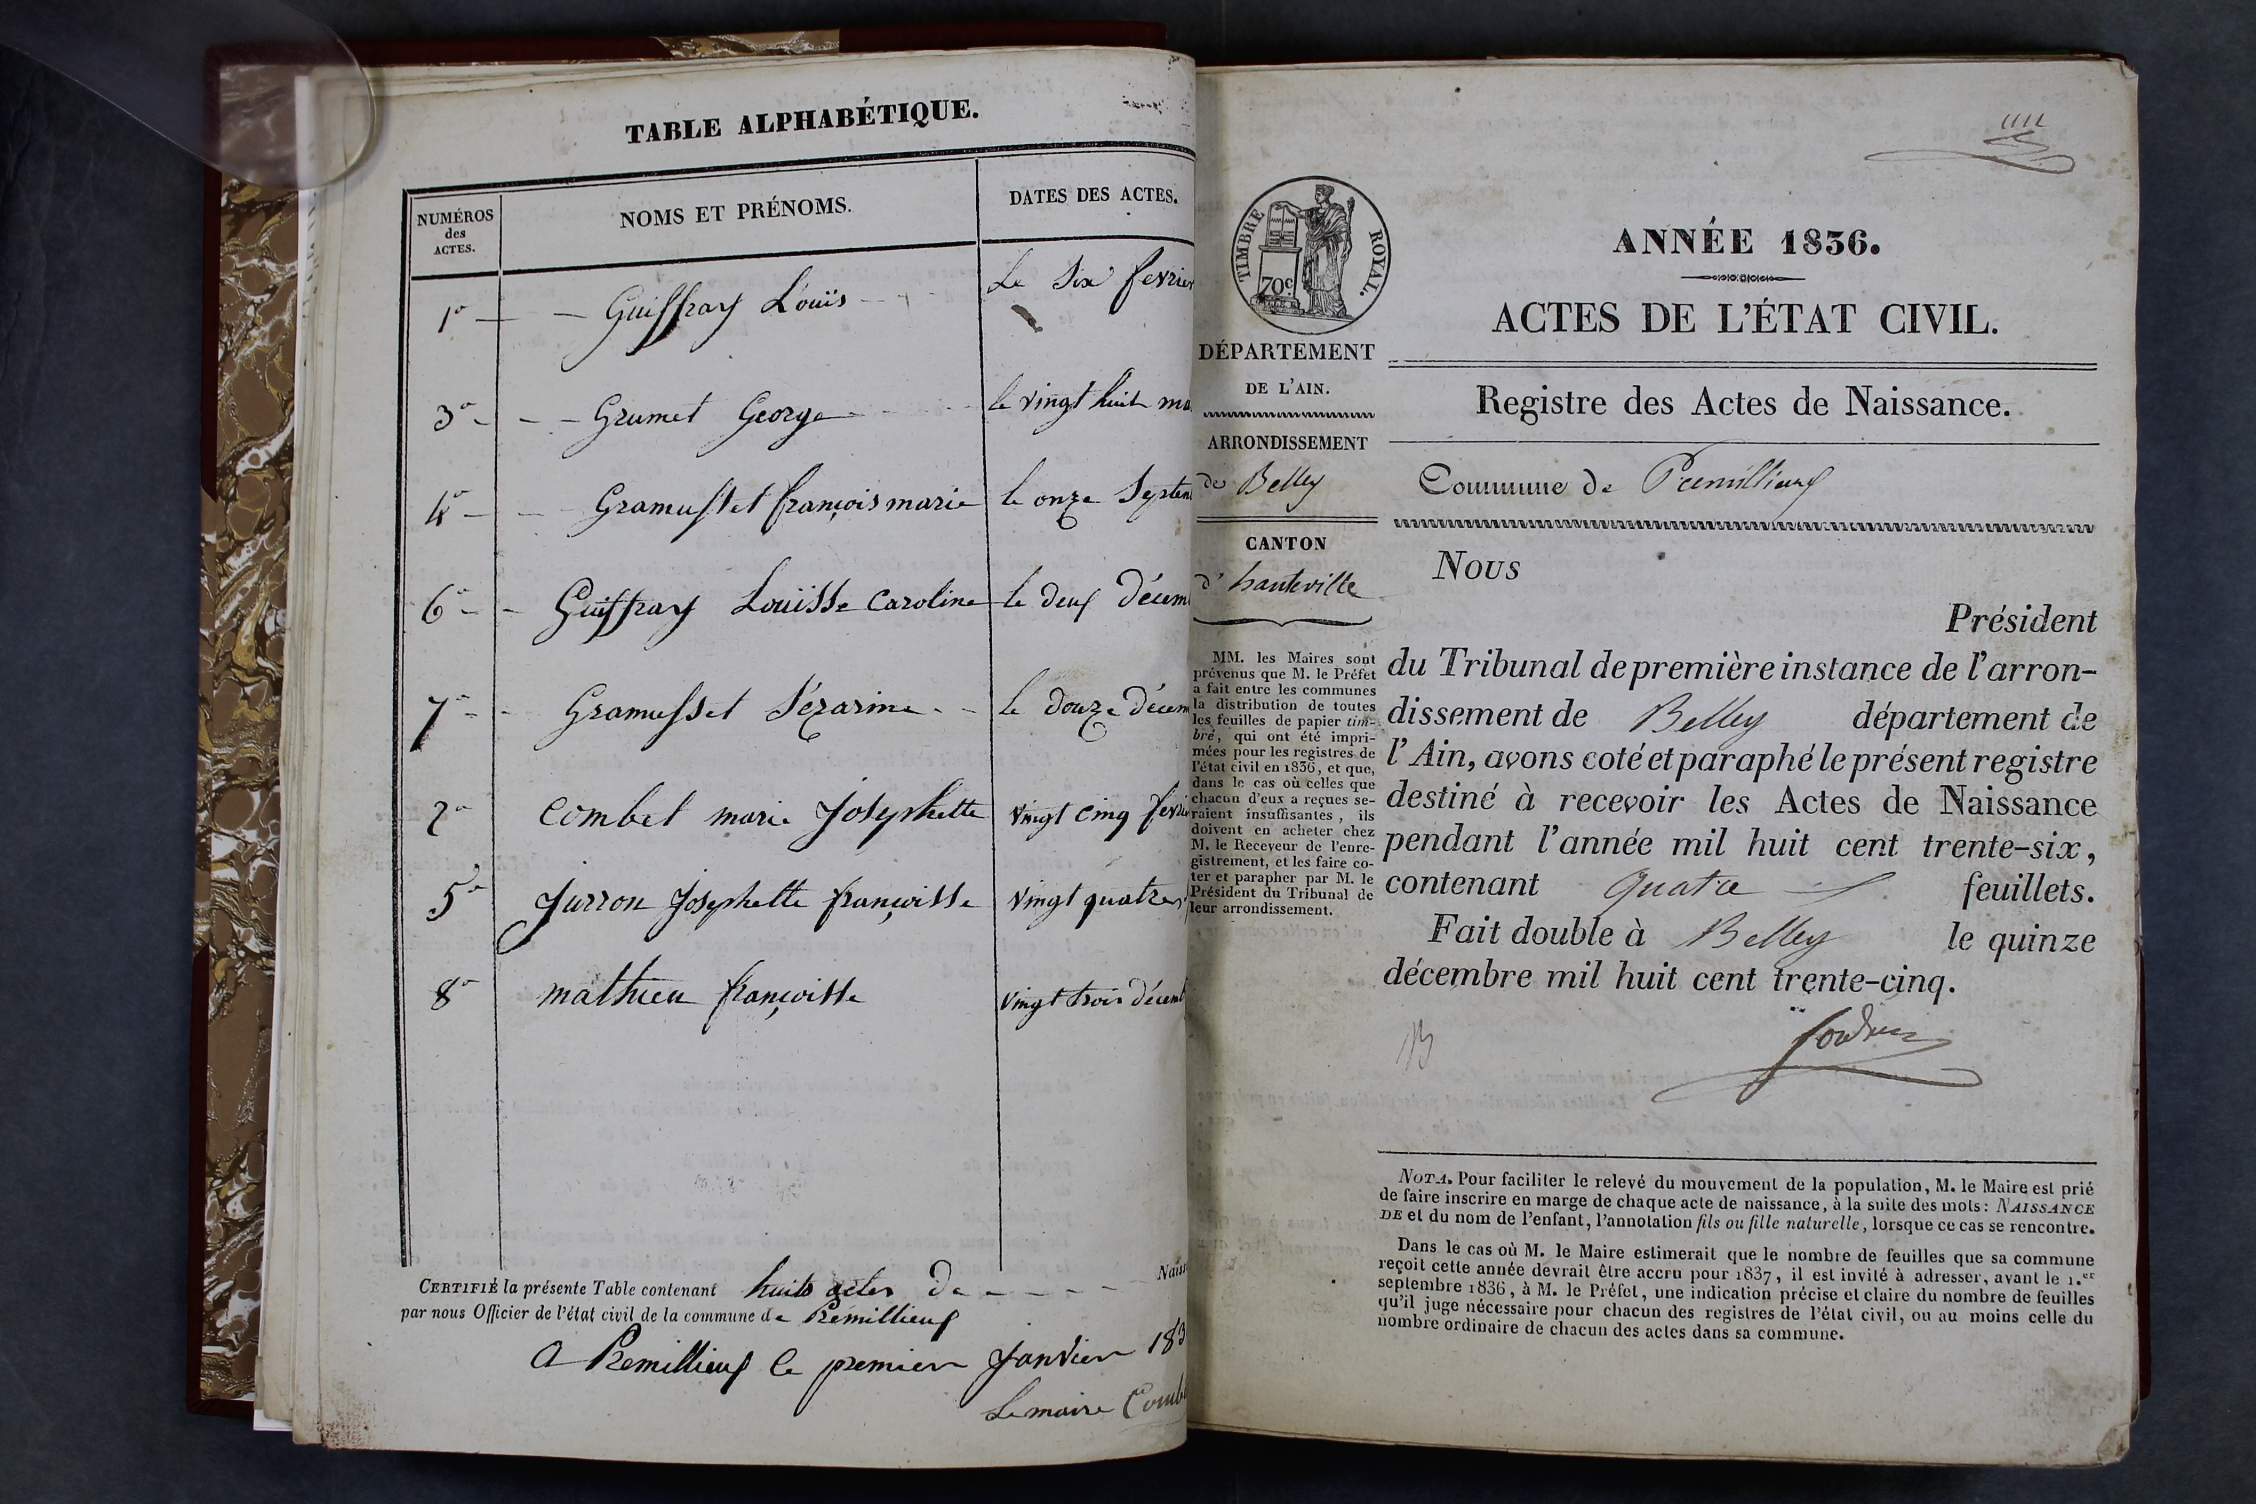 TABLE ALPHABÉTIQUE.
NUMÉROS des ACTES. NOMS ET PRÉNOMS. DATES DES ACTES.
1º Guiffray Louïs Le Six fevrier
3º Grumet George le vingt huit ma
4º Gramusset françois marie le onze Septem
6º Guiffray Louïsse Caroline le deux Décem
7º Gramusset Sézarine le douze décem
2º Combet marie Josephette vingt cinq fevri
5º Jurron Josephette françoisse vingt quatre
8º mathieu françoisse vingt trois décemb
CERTIFIÉ la présente Table contenant huits actes de Naiss
par nous Officier de l'état civil de la commune de Prémillieux
A Premillieux le premier Janvier 183
Le maire Comb
TIMBRE ROYAL.
70c.
DÉPARTEMENT
DE L'AIN.
ARRONDISSEMENT
de Belley
CANTON
d'hauteville
MM. les Maires sont
prévenus que M. le Préfet
a fait entre les communes
la distribution de toutes
les feuilles de papier tim-
bré, qui ont été impri-
mées pour les registres de
l'état civil en 1836, et que,
dans le cas où celles que
chacun d'eux a reçues se-
raient insuffisantes, ils
doivent en acheter chez
M. le Receveur de l'enre-
gistrement, et les faire co-
ter et parapher par M. le
Président du Tribunal de
leur arrondissement.
ANNÉE 1836.
ACTES DE L'ÉTAT CIVIL.
Registre des Actes de Naissance.
Commune de Premillieux
Nous
Président
du Tribunal de première instance de l'arron-
dissement de Belley département de
l'Ain, avons coté et paraphé le présent registre
destiné à recevoir les Actes de Naissance
pendant l'année mil huit cent trente-six,
contenant quatre feuillets.
Fait double à Belley le quinze
décembre mil huit cent trente-cinq.
NOTA. Pour faciliter le relevé du mouvement de la population, M. le Maire est prié
de faire inscrire en marge de chaque acte de naissance, à la suite des mots: NAISSANCE
DE et du nom de l'enfant, l'annotation fils ou fille naturelle, lorsque ce cas se rencontre.
Dans le cas où M. le Maire estimerait que le nombre de feuilles que sa commune
reçoit cette année devrait être accru pour 1837, il est invité à adresser, avant le 1.er
septembre 1836, à M. le Préfet, une indication précise et claire du nombre de feuilles
qu'il juge nécessaire pour chacun des registres de l'état civil, ou au moins celle du
nombre ordinaire de chacun des actes dans sa commune.